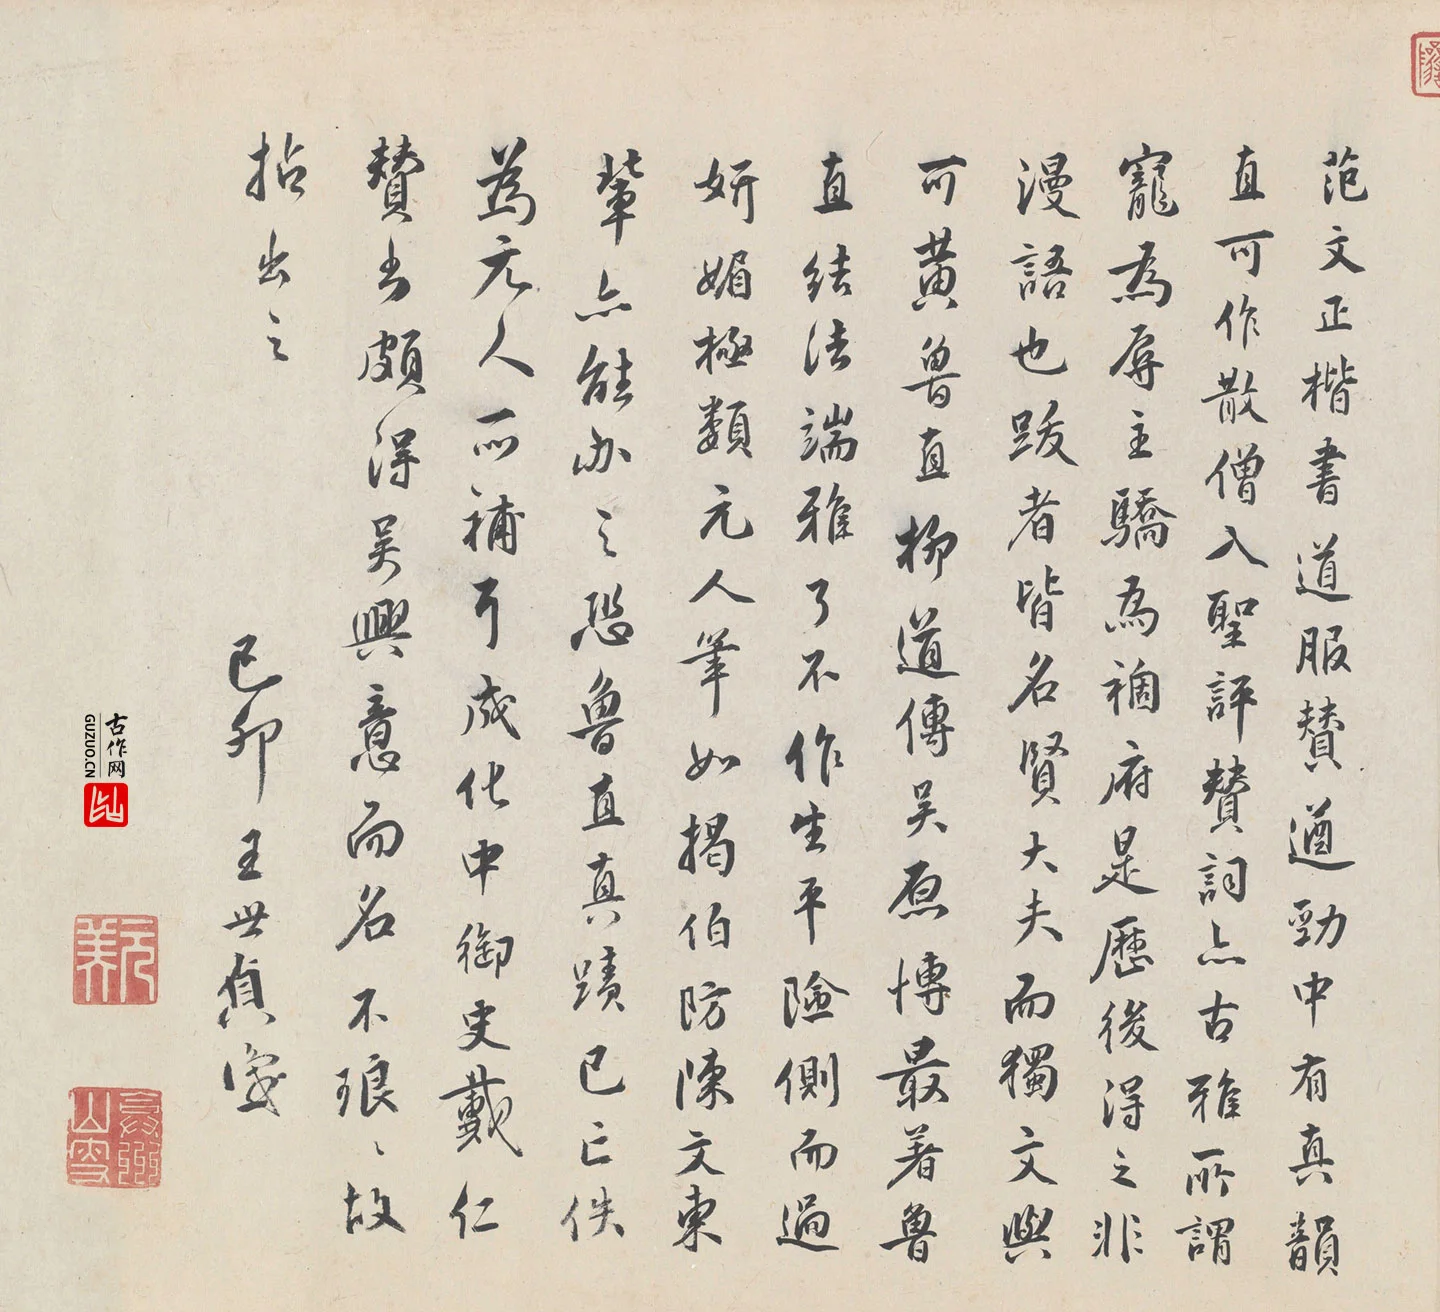 范文正楷書道服赞遒勁中有真韻
直可作散僧入聖評赞詞亦古雅所謂
寵為辱主驕為禍府是歷後得之非
漫語也跋者皆名賢大夫而獨文與
可黄魯直柳道傳吴原博最著魯
直結法端雅了不作生平險側而過
妍媚極類元人筆如揭伯防陳文東
輩亦能办之恐魯直真蹟已亡佚
為元人所補耳成化中御史戴仁
赞书頗得吴興意而名不琅〻故
拈出之
己卯王世貞識
古作网
GUZUO.CN